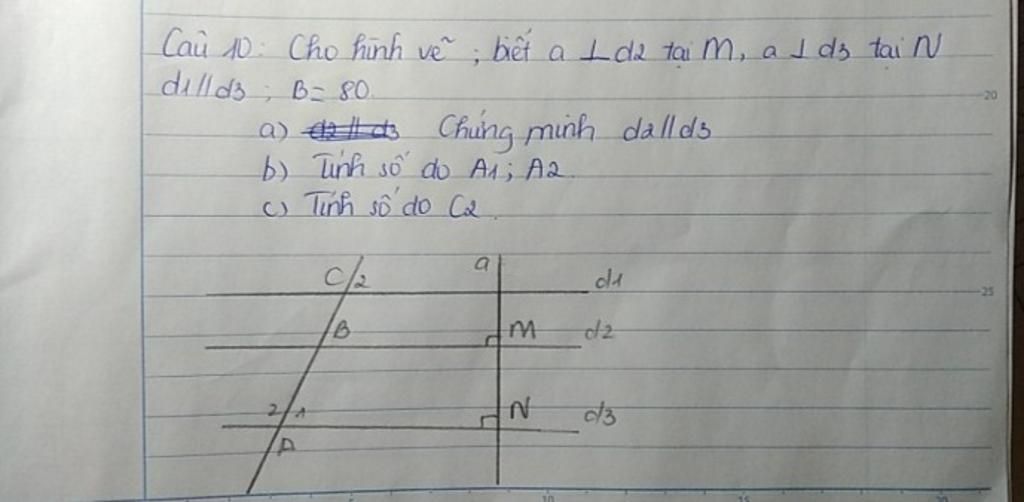 Câu 10: Cho hình vẽ; biết a ⊥ d2 tại M, a ⊥ d3 tại N
d1//d3; B = 80
a) d2//d3 Chứng minh d2//d3
b) Tính số đo A1; A2.
c) Tính số đo C2.
C 2 a d1
B M d2
2 1 N d3
A
20
25
10
15